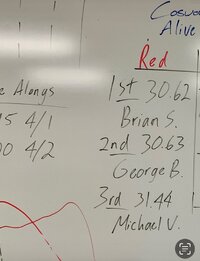 Alive
Red
1st 30.62
Brian S.
2nd 30.63
George B.
3rd 31.44
Michael V.
Alongs
4/1
4/2